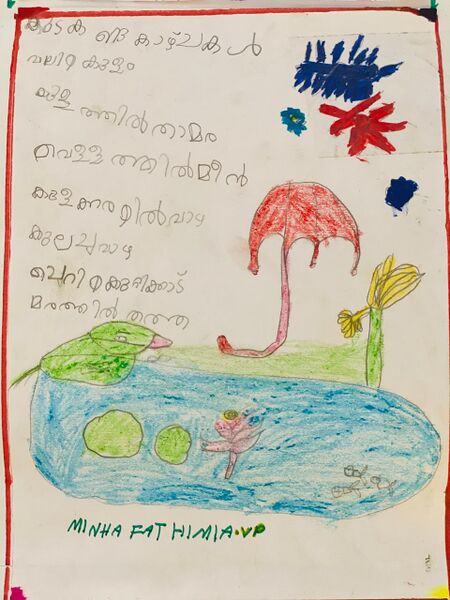 കുടക ണ്ട കാഴ്ചകൾ
വലിയ കുളം
കുള ത്തിൽ താമര
വെള്ള ത്തിൽ മീൻ
കുളക്കരയിൽ വാഴ
കുലച്ചവാഴ
ചെറിയകുറ്റിക്കാട്
മരത്തിൽ തത്ത
MINHA FATHIMIA.VP